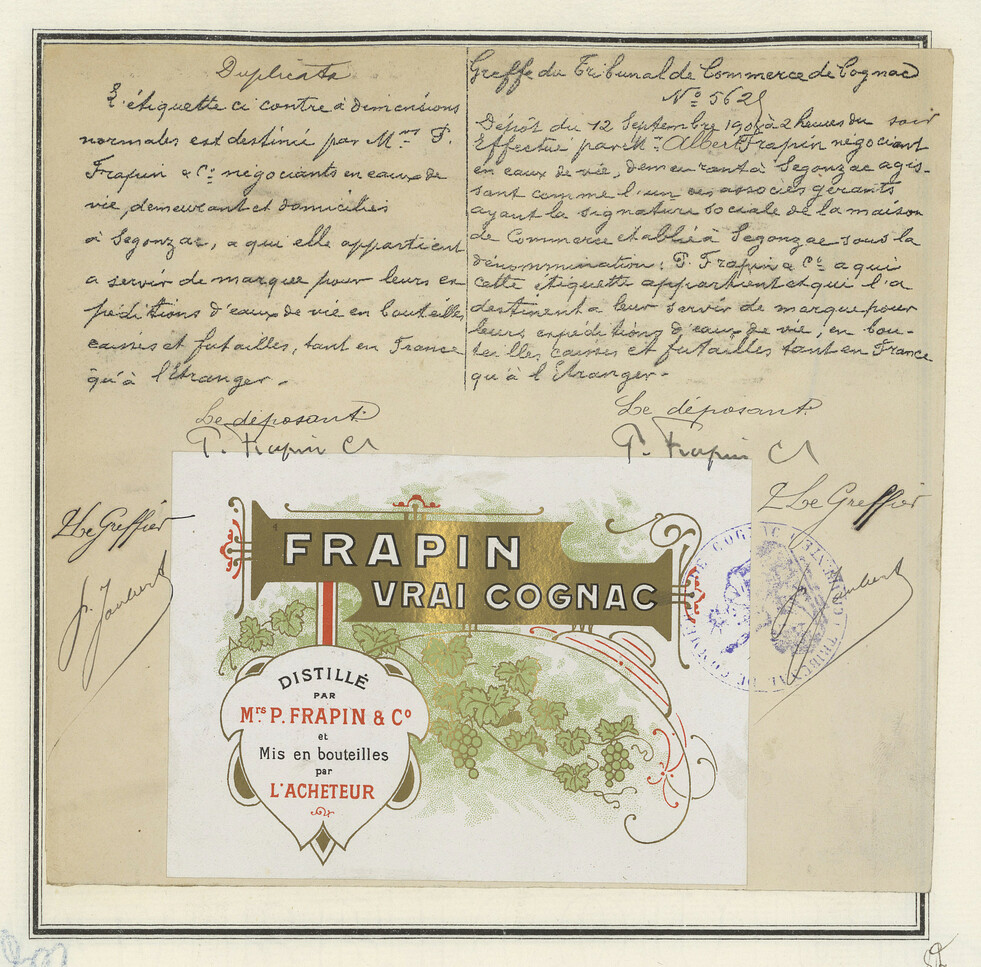 Duplicata
L'étiquette ci contre à dimensions
normales est destinée par Mrs P.
Frapin & Cº négociants en eaux de
vie, demeurant et domiciliés
à Segonzac, a qui elle appartient
a servir de marque pour leurs ex
péditions d'eaux de vie en bouteilles
caisses et futailles, tant en France
qu'à l'Etranger.-
Le déposant
P. Frapin Cº
Le Greffier
Greffe du Tribunal de Commerce de Cognac
Nº 562
Dépôt du 12 Septembre 190 à 2 heures du soir
Effectué par Mr. Albert Frapin négociant
en eaux de vie, demeurant à Segonzac agis-
sant comme l'un des associés gérants
ayant la signature sociale de la maison
de Commerce etablie à Segonzac sous la
dénommination: P. Frapin & Cº a qui
cette étiquette appartient et qui l'a
destinent a leur servir de marque pour
leurs expéditions d'eaux de vie, en bou-
teilles caisses et futailles tant en France
qu'à l'Etranger.-
Le déposant
P. Frapin Cº
Le Greffier
FRAPIN
VRAI COGNAC
DISTILLÉ
PAR
Mrs P. FRAPIN & Cº
et
Mis en bouteilles
par
L'ACHETEUR
TRIBUNAL DE COMMERCE DE COGNAC